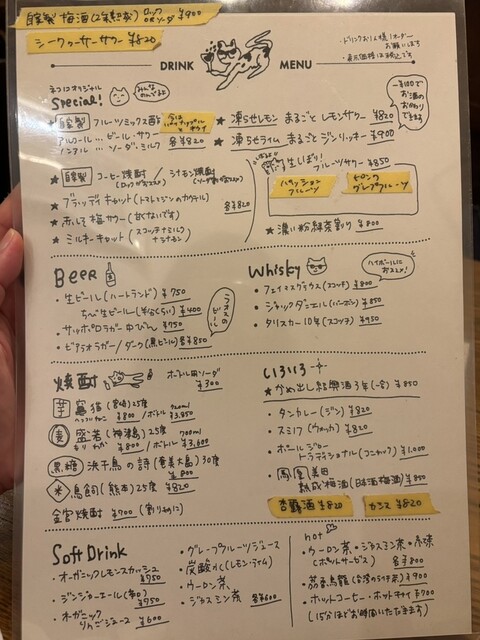 自家製 梅酒(2年熟成) ロック ORソーダ ¥900
シークヮーサーサワー ¥820
DRINK MENU
・ドリンクお1人様1オーダー
お願いします
・表示価格は税込です
ネコロオリジナル
Special!
みんな のんでるよ!
★ 自家製 フルーツミックス酢
アルコール… ビール・サワー
ノンアル … ソーダ・ミルク 各¥820
★ 凍らせレモン まるごと レモンサワー ¥820
★ 凍らせライム まるごと ジンリッキー ¥900
+¥100で
お酒の
おかわり
できます
★ 自家製 コーヒー焼酎 / シナモン焼酎
(ロックがおススメ) (ソーダ割がおススメ)
★ ブラッディキャット(トマトとジンのカクテル)
★ 赤しそ梅サワー(甘くないです)
★ ミルキーキャット(スコッチとミルク
とシナモン) 各¥820
生しぼり!
フルーツサワー ¥850
パッション
フルーツ
ピンク
グレープフルーツ
★ 濃い粉緑茶割り ¥800
Beer
・生ビール(ハートランド) ¥750
ちび生ビール(半分くらい) ¥400
・サッポロラガー中びん ¥750
・ビアラオラガー/ダーク(黒ビール) 各¥850
ラオスの
ビール
Whisky
ハイボールに
おススメ!
・フェイマスグラウス(スコッチ) ¥800
・ジャックダニエル(バーボン) ¥850
・タリスカー10年(スコッチ) ¥950
焼酎
ボトル用ソーダ
¥300
芋 (宮崎)25度 720ml
¥800 / ボトル ¥3,850
麦 盛若(神津島)25度 700ml
もり わか ¥800 / ボトル ¥3,600
黒糖 浜千鳥の詩(奄美大島)30度
¥800
米 鳥飼(熊本)25度 ¥820
金宮焼酎 ¥700(割りもの)
いろいろ
★ かめ出し紹興酒3年(一合) ¥850
・タンカレー(ジン) ¥820
・スミノフ(ウォッカ) ¥820
・ポールジロー
トラディショナル(コニャック) ¥1,000
熟成梅酒(日本酒梅酒) ¥850
杏露酒 ¥820
カシス ¥820
Soft Drink
・オーガニックレモンスカッシュ
¥750
・ジンジャーエール(辛口)
¥750
・オーガニック
りんごジュース ¥600
・グレープフルーツジュース
・炭酸水(レモン・ライム)
・ウーロン茶
・ジャスミン茶 各¥600
hot
・ウーロン茶・ジャスミン茶・緑茶
(ポットサービス) 各¥800
・ホットコーヒー・ホットチャイ ¥700
(15分ほどお時間いただきます)